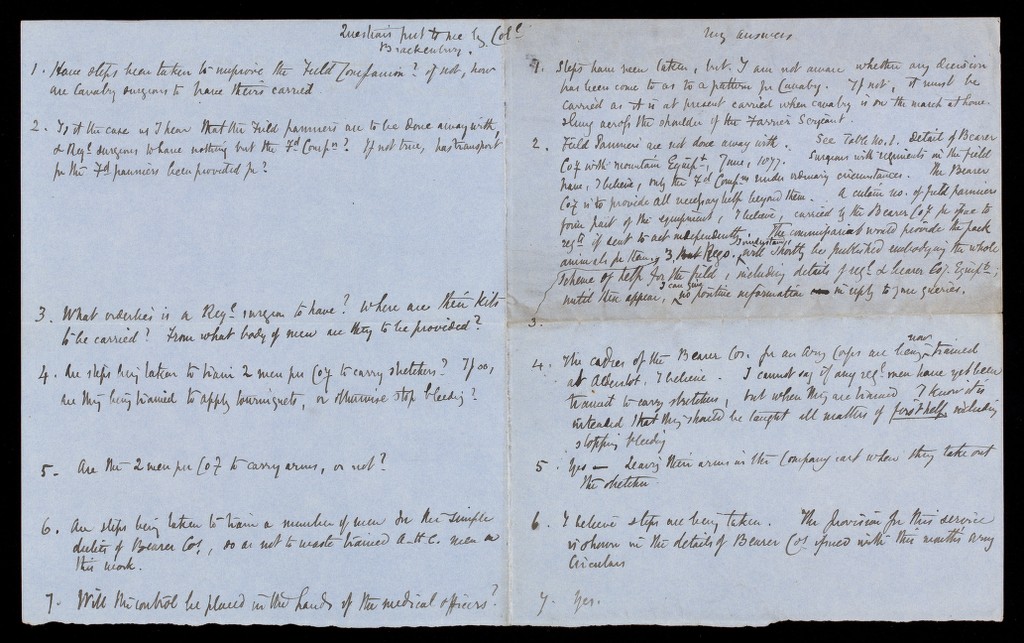 Questions put to me by Colˡ
Brackenbury.
1. Have steps been taken to improve the Field Companion? if not, how
are Cavalry surgeons to have theirs carried
2. Is it the case as I hear that the Field panniers are to be done away with,
& Regˡ surgeons to have nothing but the Fᵈ Compⁿ? If not true, has transport
for the Fᵈ panniers been provided for?
3. What orderlies is a Regˡ surgeon to have? Where are their kits
to be carried? From what body of men are they to be provided?
4. Are steps being taken to train 2 men per Coy to carry stretchers? If so,
are they being trained to apply tourniquets, or otherwise stop bleeding?
5 - Are the 2 men per Coy to carry arms, or not?
6. Are steps being taken to train a number of men for the simple
duties of Bearer Cos, so as not to waste trained A.H.C. men on
this work.
7. Will the control be placed in the hands of the medical officers?
My answers
1. Steps have been taken, but I am not aware whether any decision
has been come to as to a pattern for Cavalry. If not, it must be
carried as it is at present carried when cavalry is on the march at home.
slung across the shoulder of the Farrier Sergeant.
2. Field Panniers are not done away with. See Table No. 1. Detail of Bearer
Coy with mountain Equipᵗ, June, 1877. Surgeons with regiments in the field
have, I believe, only the Fᵈ Compⁿ under ordinary circumstances. The Bearer
Coy is to provide all necessary help beyond them. A certain no. of field panniers
form part of the equipment, I believe, carried by the Bearer Coy for issue to
regᵗˢ if sent to act independently. The commissariat would provide the pack
animals for them. 3, But Regs. will shortly be published embodying the whole
scheme of help for the field, including details of regˡ & bearer Coy. Equipᵗ;
until then appear, I can give no positive information in reply to your queries.
3.
4. The cadres of the Bearer Cos. for an Army Corps are being now trained
at Aldershot, I believe. I cannot say if any regˡ men have yet been
trained to carry stretchers, but when they are trained I know it is
intended that they should be taught all matters of first help including
stopping bleeding
5. Yes - leaving their arms in the Company cart when they take out
the stretcher
6. I believe steps are being taken. The provision for this service
is shown in the details of Bearer Cos issued with this month's Army
Circulars
7. Yes.